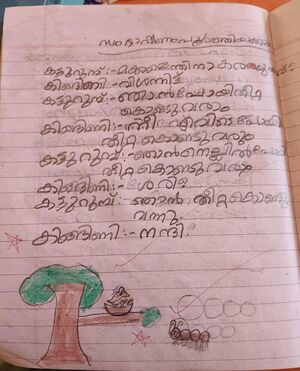 സംഭാഷണം പൂർത്തിയാക്കാം
കട്ടുറുമ്പ് :- മക്കളെന്തിനാ കരയുന്നത്
കിങ്ങിണി :- വിശന്നിട്ട്
കട്ടുറുമ്പ് :- ഞാൻ പോയി തീറ്റ
കൊണ്ടു വരാം
കിങ്ങിണി :- നീ എവിടെ പോയി
തീറ്റ കൊണ്ടു വരും
കട്ടുറുമ്പ് :- ഞാൻ നെല്ലിൽ പോയി
തീറ്റ കൊണ്ടു വരാം
കിങ്ങിണി :- ശെരി
കട്ടുറുമ്പ് :- ഞാൻ തീറ്റ കൊണ്ടു
വന്നു.
കിങ്ങിണി :- നന്ദി.